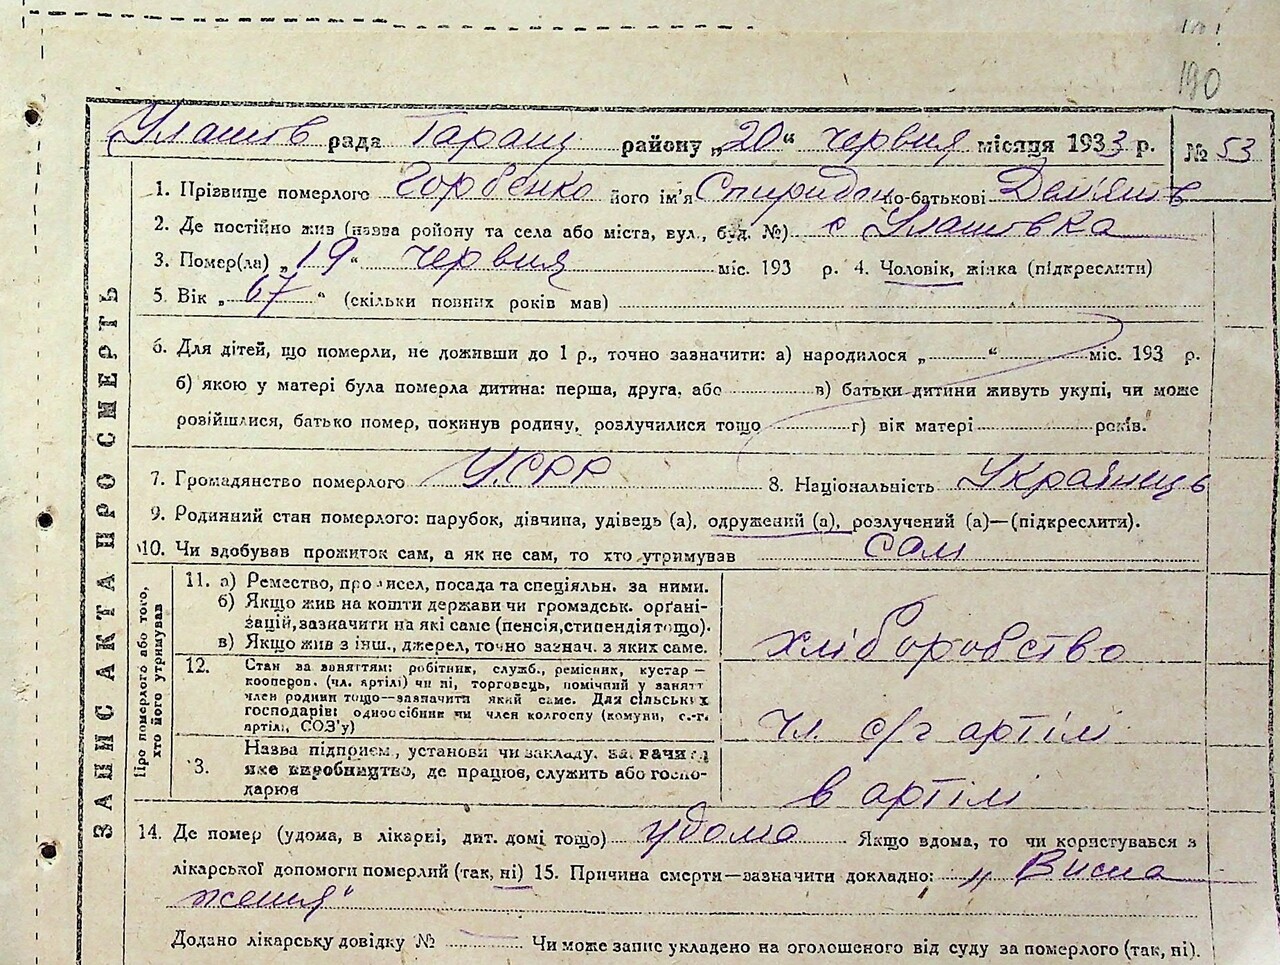 190
Улашів рада Таращ району „20“ червня місяця 1933 р. № 53
ЗАПИС АКТА ПРО СМЕРТЬ
1. Прізвище померлого Горбенко його ім'я Спиридон по-батькові Дем'янів
2. Де постійно жив (назва району та села або міста, вул., буд. №) с Улашівка
3. Помер(ла) „19“ червня міс. 193 р. 4. Чоловік, жінка (підкреслити)
5. Вік „67“ (скільки повних років мав)
6. Для дітей, що померли, не доживши до 1 р., точно зазначити: а) народилося „ “ міс. 193 р.
б) якою у матері була померла дитина: перша, друга, або в) батьки дитини живуть укупі, чи може
розійшлися, батько помер, покинув родину, розлучилися тощо г) вік матері років.
7. Громадянство померлого УСРР 8. Національність Українець
9. Родинний стан померлого: парубок, дівчина, удівець (а), одружений (а), розлучений (а)—(підкреслити).
10. Чи вдобував прожиток сам, а як не сам, то хто утримував сам
Про померлого або того,
хто його утримував
11. а) Ремество, промисел, посада та спеціяльн. за ними.
б) Якщо жив на кошти держави чи громадськ. орґані-
зацій, зазначити на які саме (пенсія, стипендія тощо).
в) Якщо жив з інш., джерел, точно зазнач. з яких саме.
хліборобство
12. Стан за заняттям: робітник, служб., ремісник, кустар—
кооперов. (чл. артілі) чи ні, торговець, помічний у занятт
член родини тощо—зазначити який саме. Для сільських
господарів: одноосібник чи член колгоспу (комуни, с.-г.
артілі, СОЗ'у)
чл. с/г артілі
Назва підприєм., установи чи закладу, зазначити
3. яке виробництво, де працює, служить або госпо-
дарює
в артілі
14. Де помер (удома, в лікарні, дит. домі тощо) удома Якщо вдома, то чи користувався з
лікарської допомоги померлий (так, ні) 15. Причина смерти—зазначити докладно: „Висна
ження“
Додано лікарську довідку № Чи може запис укладено на оголошеного від суду за померлого (так, ні).